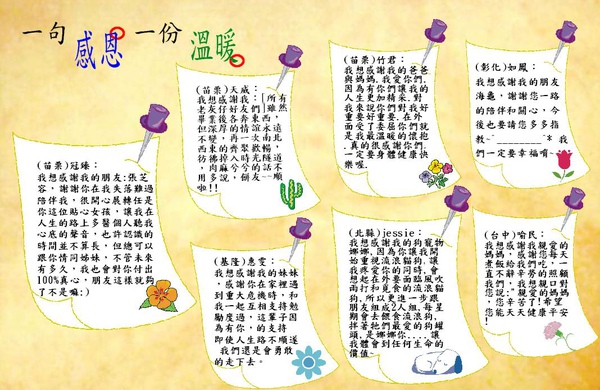 一句 感恩 一份 溫暖
(苗栗)冠臻:
我想感謝我的朋友:張芝
容,謝謝你在我失落難過
陪伴我,很開心展轉任是
你這位貼心女孩,讓我在
人生的路上多醫個人聽我
心底的聲音,也許認識的
時間並不算長,但總可以
跟你情同姊妹,不管未來
有多久,我也會對你付出
100%真心,朋友這樣就夠
了不是嘛:)
(苗栗)天威:
我想感謝我:「所有
老灰仔好友們」雖然
畢業後各奔東西,
但深厚的情誼永遠
不變,再一次南北
西東的齊聚歡暢,
彷彿掉入時光隧道
,肉麻兮兮的話不
用多說,餅友~~順
啦!!
(苗栗)竹君:
我想感謝我的爸爸
與媽媽.我愛你們.
因為有你們讓我的
人生更加精采.對
我來說你們對我好
重要好重要.在外
面受了委屈你們就
是我最溫暖的懷抱
.真的很感謝你們.
一定要身體健康快
樂喔.
(彰化)如鳳:
我想感謝我的朋友
海龜,謝謝您一路
的陪伴和關心,今
後也要請您多多指
教*ˇ________ˇ* 我
們一定要幸福唷~
(基隆)惠雯:
我想感謝我的妹妹
,感謝你在家裡遇
到重大危機時,和
我一起互相支持勉
勵度過,這輩子因
為有你,的支持
即使人生路不順遂
我們還是會勇敢
的走下去。
(北縣)jessie:
我想感謝我的狗寵物
娜娜,因為你讓我開
始重視流浪貓狗,讓
我疼愛你的同時,會
想起在外要面臨風吹
雨打和覓食的流浪貓
狗,所以更進一步跟
朋友組成2人組,每星
期會去餵食流浪狗,
拌著牠們最愛的狗罐
頭,是娜娜你....讓
我體會到任何生命的
價值~
(台中)喻民:
我想感謝我親愛的
媽媽,感謝您每天
煮飯給我們吃,一
直不辭辛勞的照顧
我們,我想親口對
您說:"親愛的媽媽
,您辛苦了!希望
您能天天健康平安
!